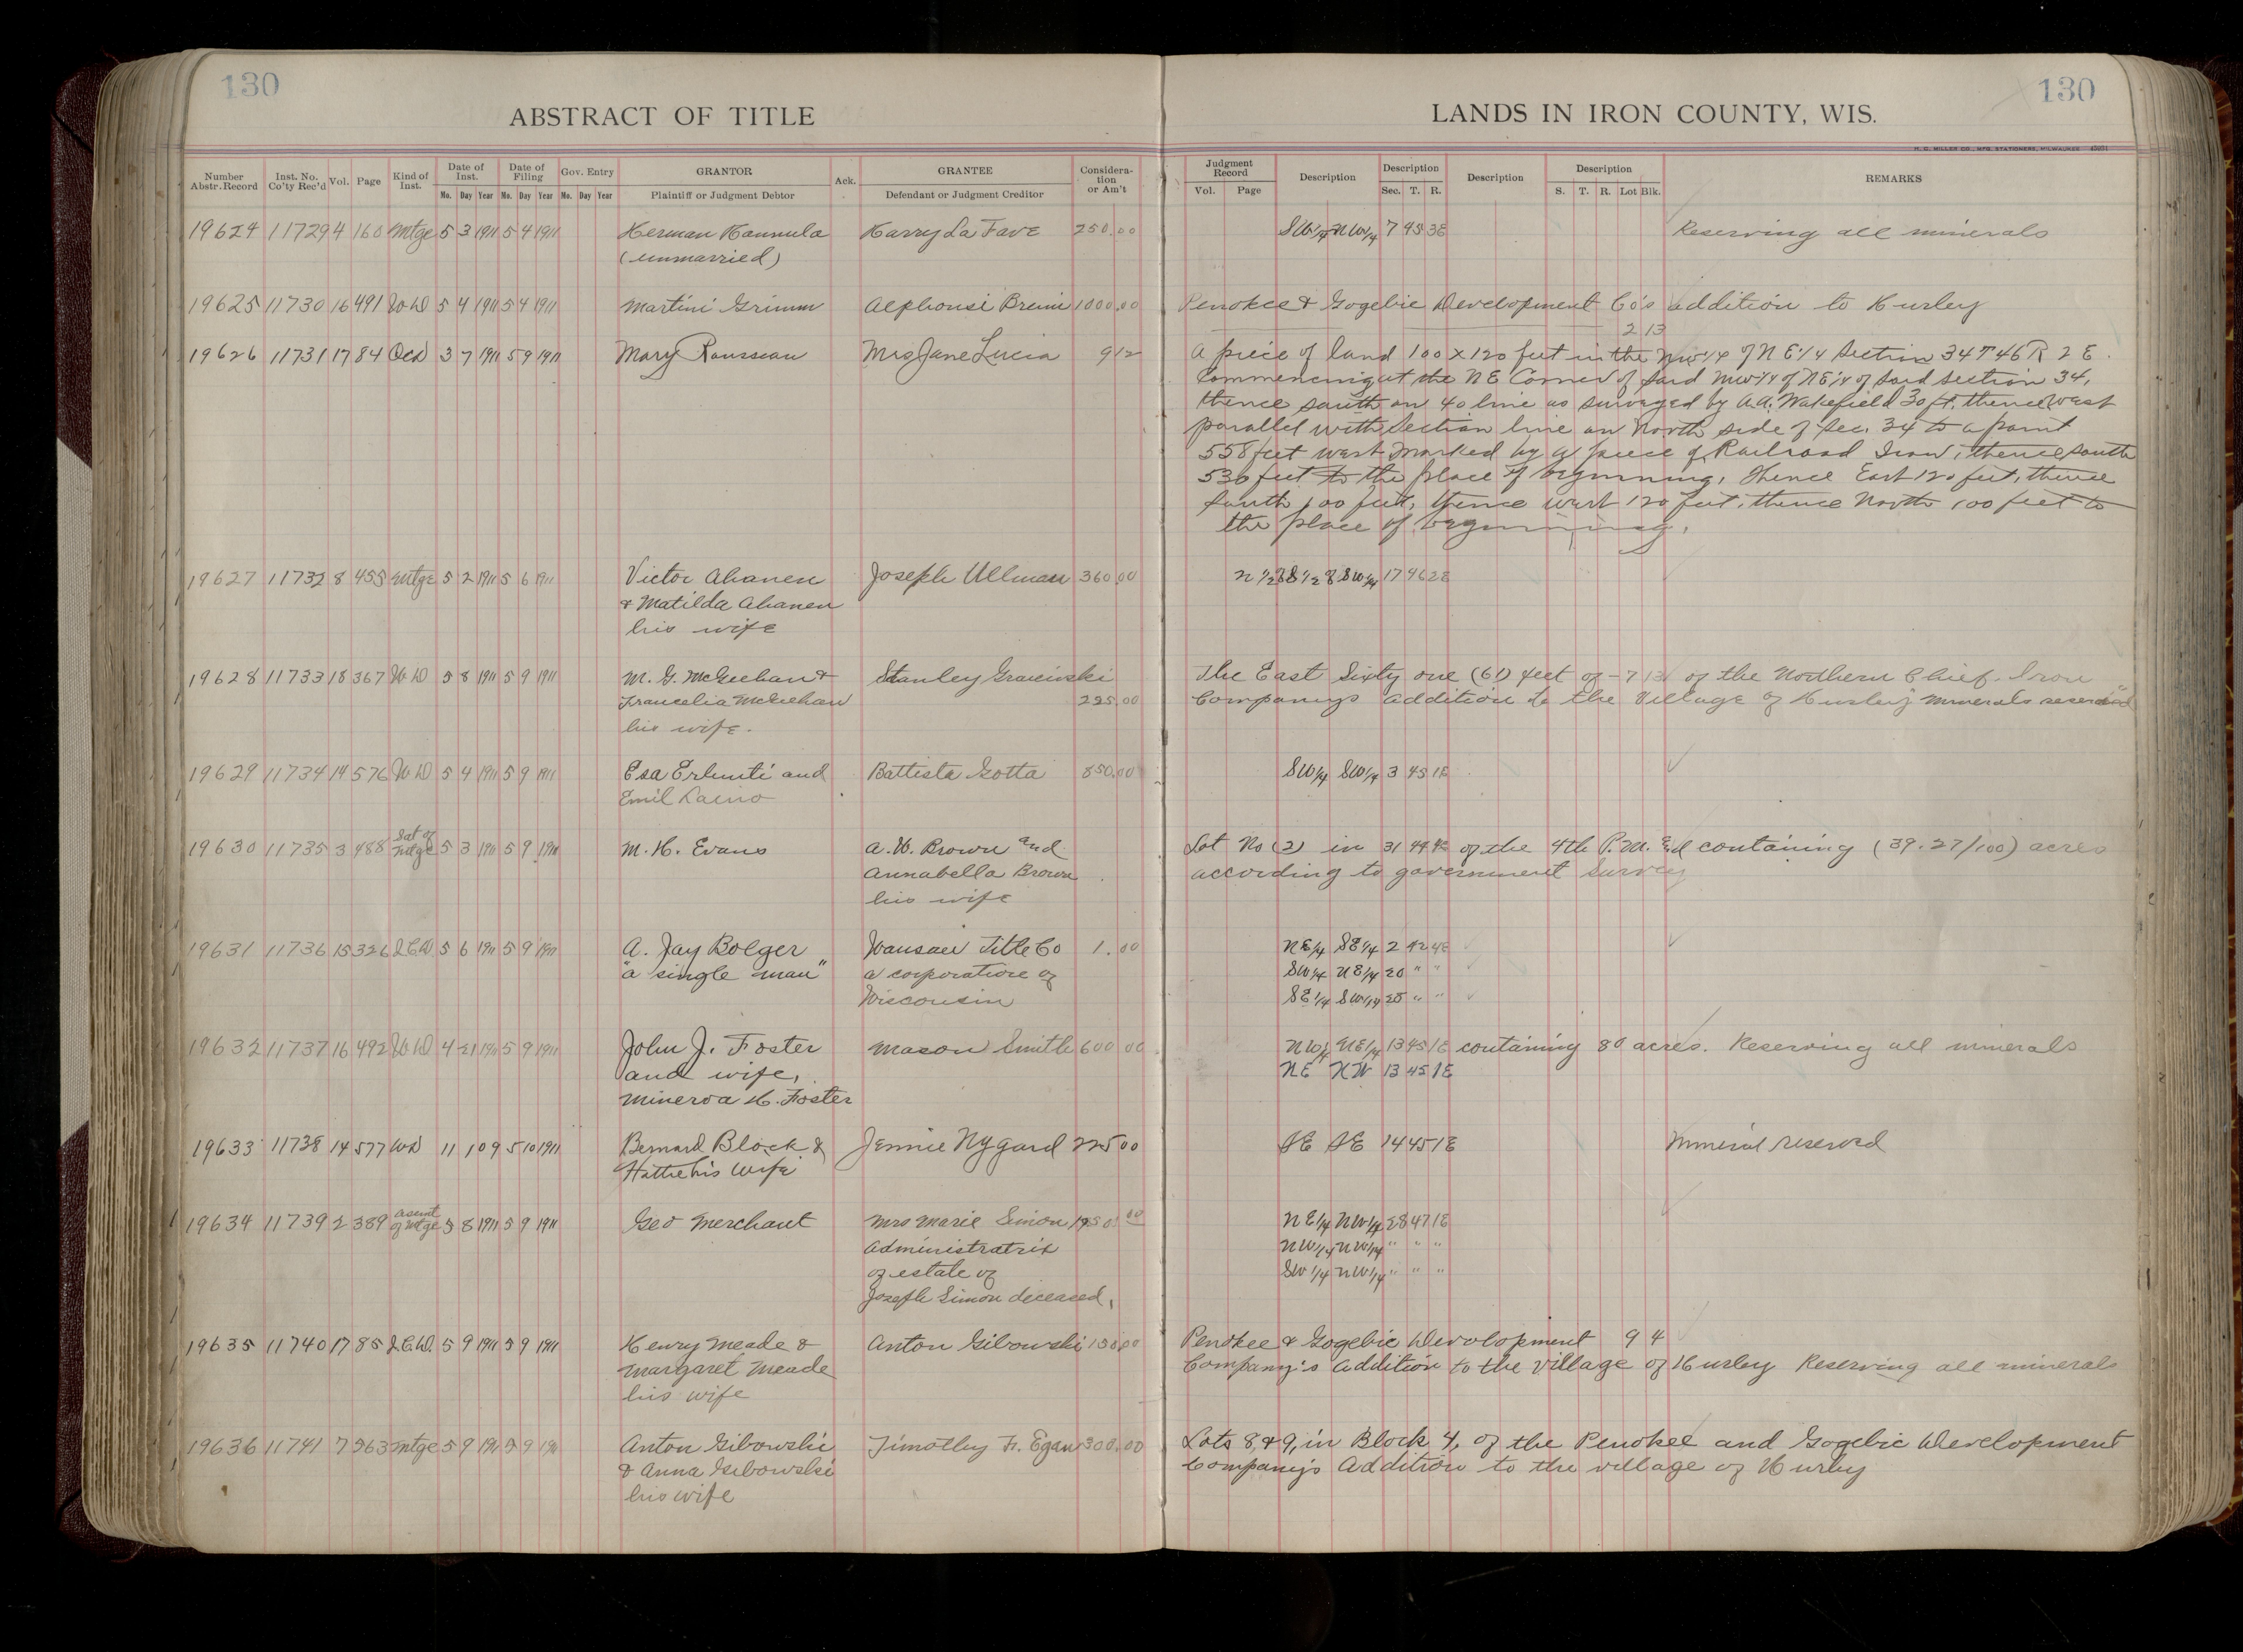 130
130
ABSTRACT OF TITLE
LANDS IN IRON COUNTY, WIS.
H. C. MILLER CO., MFG. STATIONERS, MILWAUKEE
Number Abstr. Record Inst. No. Co'ty Rec'd Vol. Page Kind of Inst. Date of Inst. Mo. Day Year Date of Filing Mo. Day Year Gov. Entry Mo. Day Year GRANTOR Plaintiff or Judgment Debtor Ack. GRANTEE Defendant or Judgment Creditor Considera-tion or Am't
Judgment Record Vol. Page Description Description Sec. T. R. Description Description S. T. R. Lot Blk. REMARKS
19624 11729 4 160 Mtge 5 3 1911 5 4 1911 Herman Hannula Harry La Fave 250.00 SW1/4 NW1/4 7 45 3E Reserving all minerals
(unmarried)
19625 11730 16 491 WD 5 4 1911 5 4 1911 Martini Grimm Alphonsi Breini 1000.00 Penokee & Gogebic Development Co's addition to Hurley
2 13
19626 11731 17 84 QCD 3 7 1911 5 9 1911 Mary Rousseau Mrs Jane Lucia 912 A piece of land 100 x 120 feet in the NW1/4 of NE1/4 Section 34 T 46 R 2 E.
Commencing at the NE Corner of said NW1/4 of NE1/4 of said section 34,
thence south on 40 line as surveyed by A.A. Wakefield 30 ft. thence west
parallel with Section line on North side of Sec. 34 to a point
558 feet west marked by a piece of Railroad Iron, thence south
530 feet to the place of beginning, thence East 120 feet, thence
South 100 feet, thence west 120 feet, thence North 100 feet to
the place of beginning.
19627 11732 8 455 Mtge 5 2 1911 5 6 1911 Victor Ahanen Joseph Ullman 360.00 N 1/2 of S 1/2 of SW1/4 17 46 2E
& Matilda Ahanen
his wife
19628 11733 18 367 WD 5 8 1911 5 9 1911 M. G. McGeehan & Stanley Gracinski The East Sixty one (61) feet of - 7 13 of the Northern Chief Iron
Francelia McGeehan 225.00 Company's addition to the Village of Hurley minerals reserved
his wife.
19629 11734 14 576 WD 5 4 1911 5 9 1911 Esa Erlunti and Battista Gotta 850.00 SW1/4 SW1/4 3 45 1E
Emil Laino
19630 11735 3 488 Sat of Mtge 5 3 1911 5 9 1911 M. H. Evans A. W. Brown and Lot No (2) in 31 44 4E of the 4th P.M. containing (39.27/100) acres
Annabella Brown according to government survey
his wife
19631 11736 15 326 QCD 5 6 1911 5 9 1911 A. Jay Bolger Wausau Title Co 1.00 NE1/4 SE1/4 2 42 4E
"a single man" a corporation of SW1/4 NE1/4 20 " "
Wisconsin SE1/4 SW1/4 20 " "
19632 11737 16 492 WD 4 21 1911 5 9 1911 John J. Foster Mason Smith 600 00 NW1/4 NE1/4 13 45 1E containing 80 acres. Reserving all minerals
and wife, NE NW 13 45 1E
Minerva H. Foster
19633 11738 14 577 WD 11 1 09 5 10 1911 Bernard Block & Jennie Nygard 225 00 SE SE 14 45 1E Mineral reserved
Hattie his wife
19634 11739 2 389 Asemt of Mtge 5 8 1911 5 9 1911 Geo Merchant Mrs Marie Simon 1950.00 NE1/4 NW1/4 28 47 1E
Administratrix NW1/4 NW1/4 " " "
of estate of SW1/4 NW1/4 " " "
Joseph Simon deceased.
19635 11740 17 85 QCD 5 9 1911 5 9 1911 Henry Meade & Anton Gibowski 150.00 Penokee & Gogebic Development 9 4
Margaret Meade Company's Addition to the village of Hurley Reserving all minerals
his wife
19636 11741 7 563 Mtge 5 9 1911 5 9 1911 Anton Gibowski Timothy Fr. Egan 300.00 Lots 8, & 9, in Block 4, of the Penokee and Gogebic Development
& Anna Gibowski Company's Addition to the village of Hurley
his wife